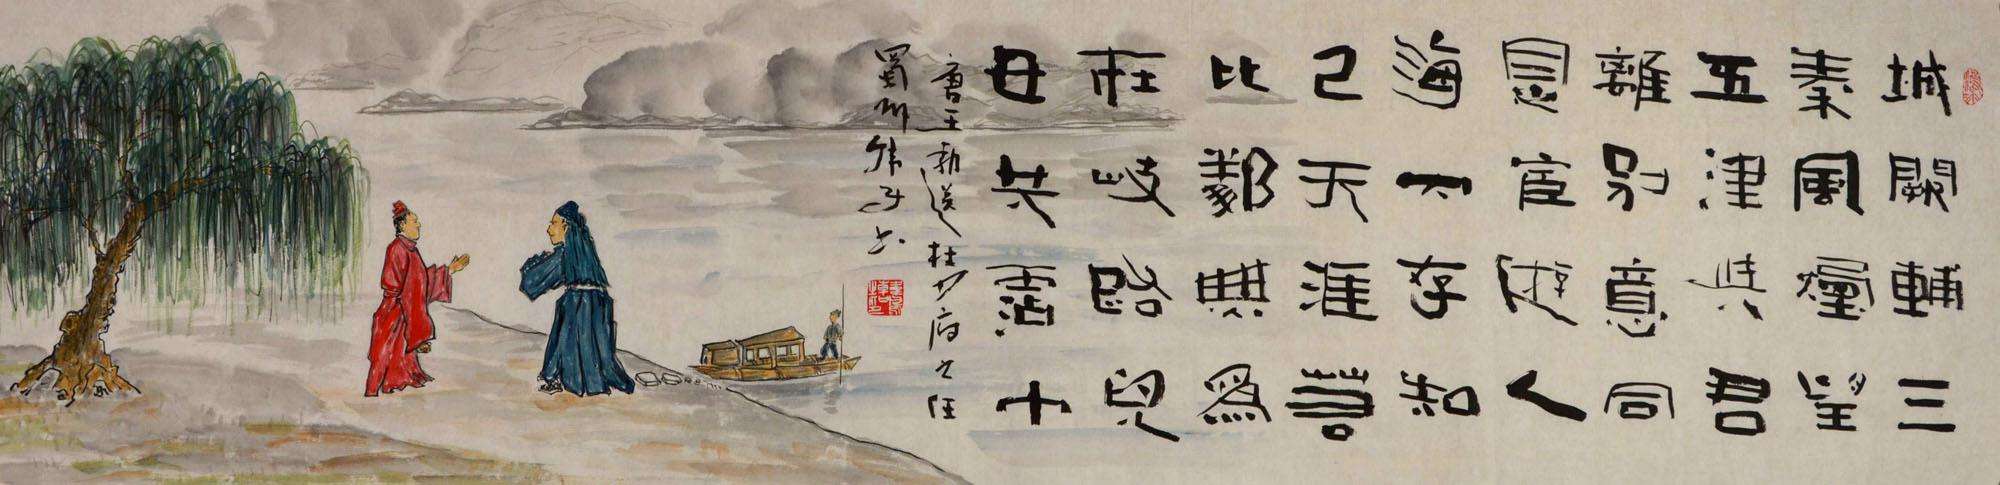 城闕輔三
秦風煙望
五津與君
離別意同
是宦遊人
海内存知
己天涯若
比鄰無爲
在岐路兒
女共霑巾
唐王勃送杜少府之任
蜀州